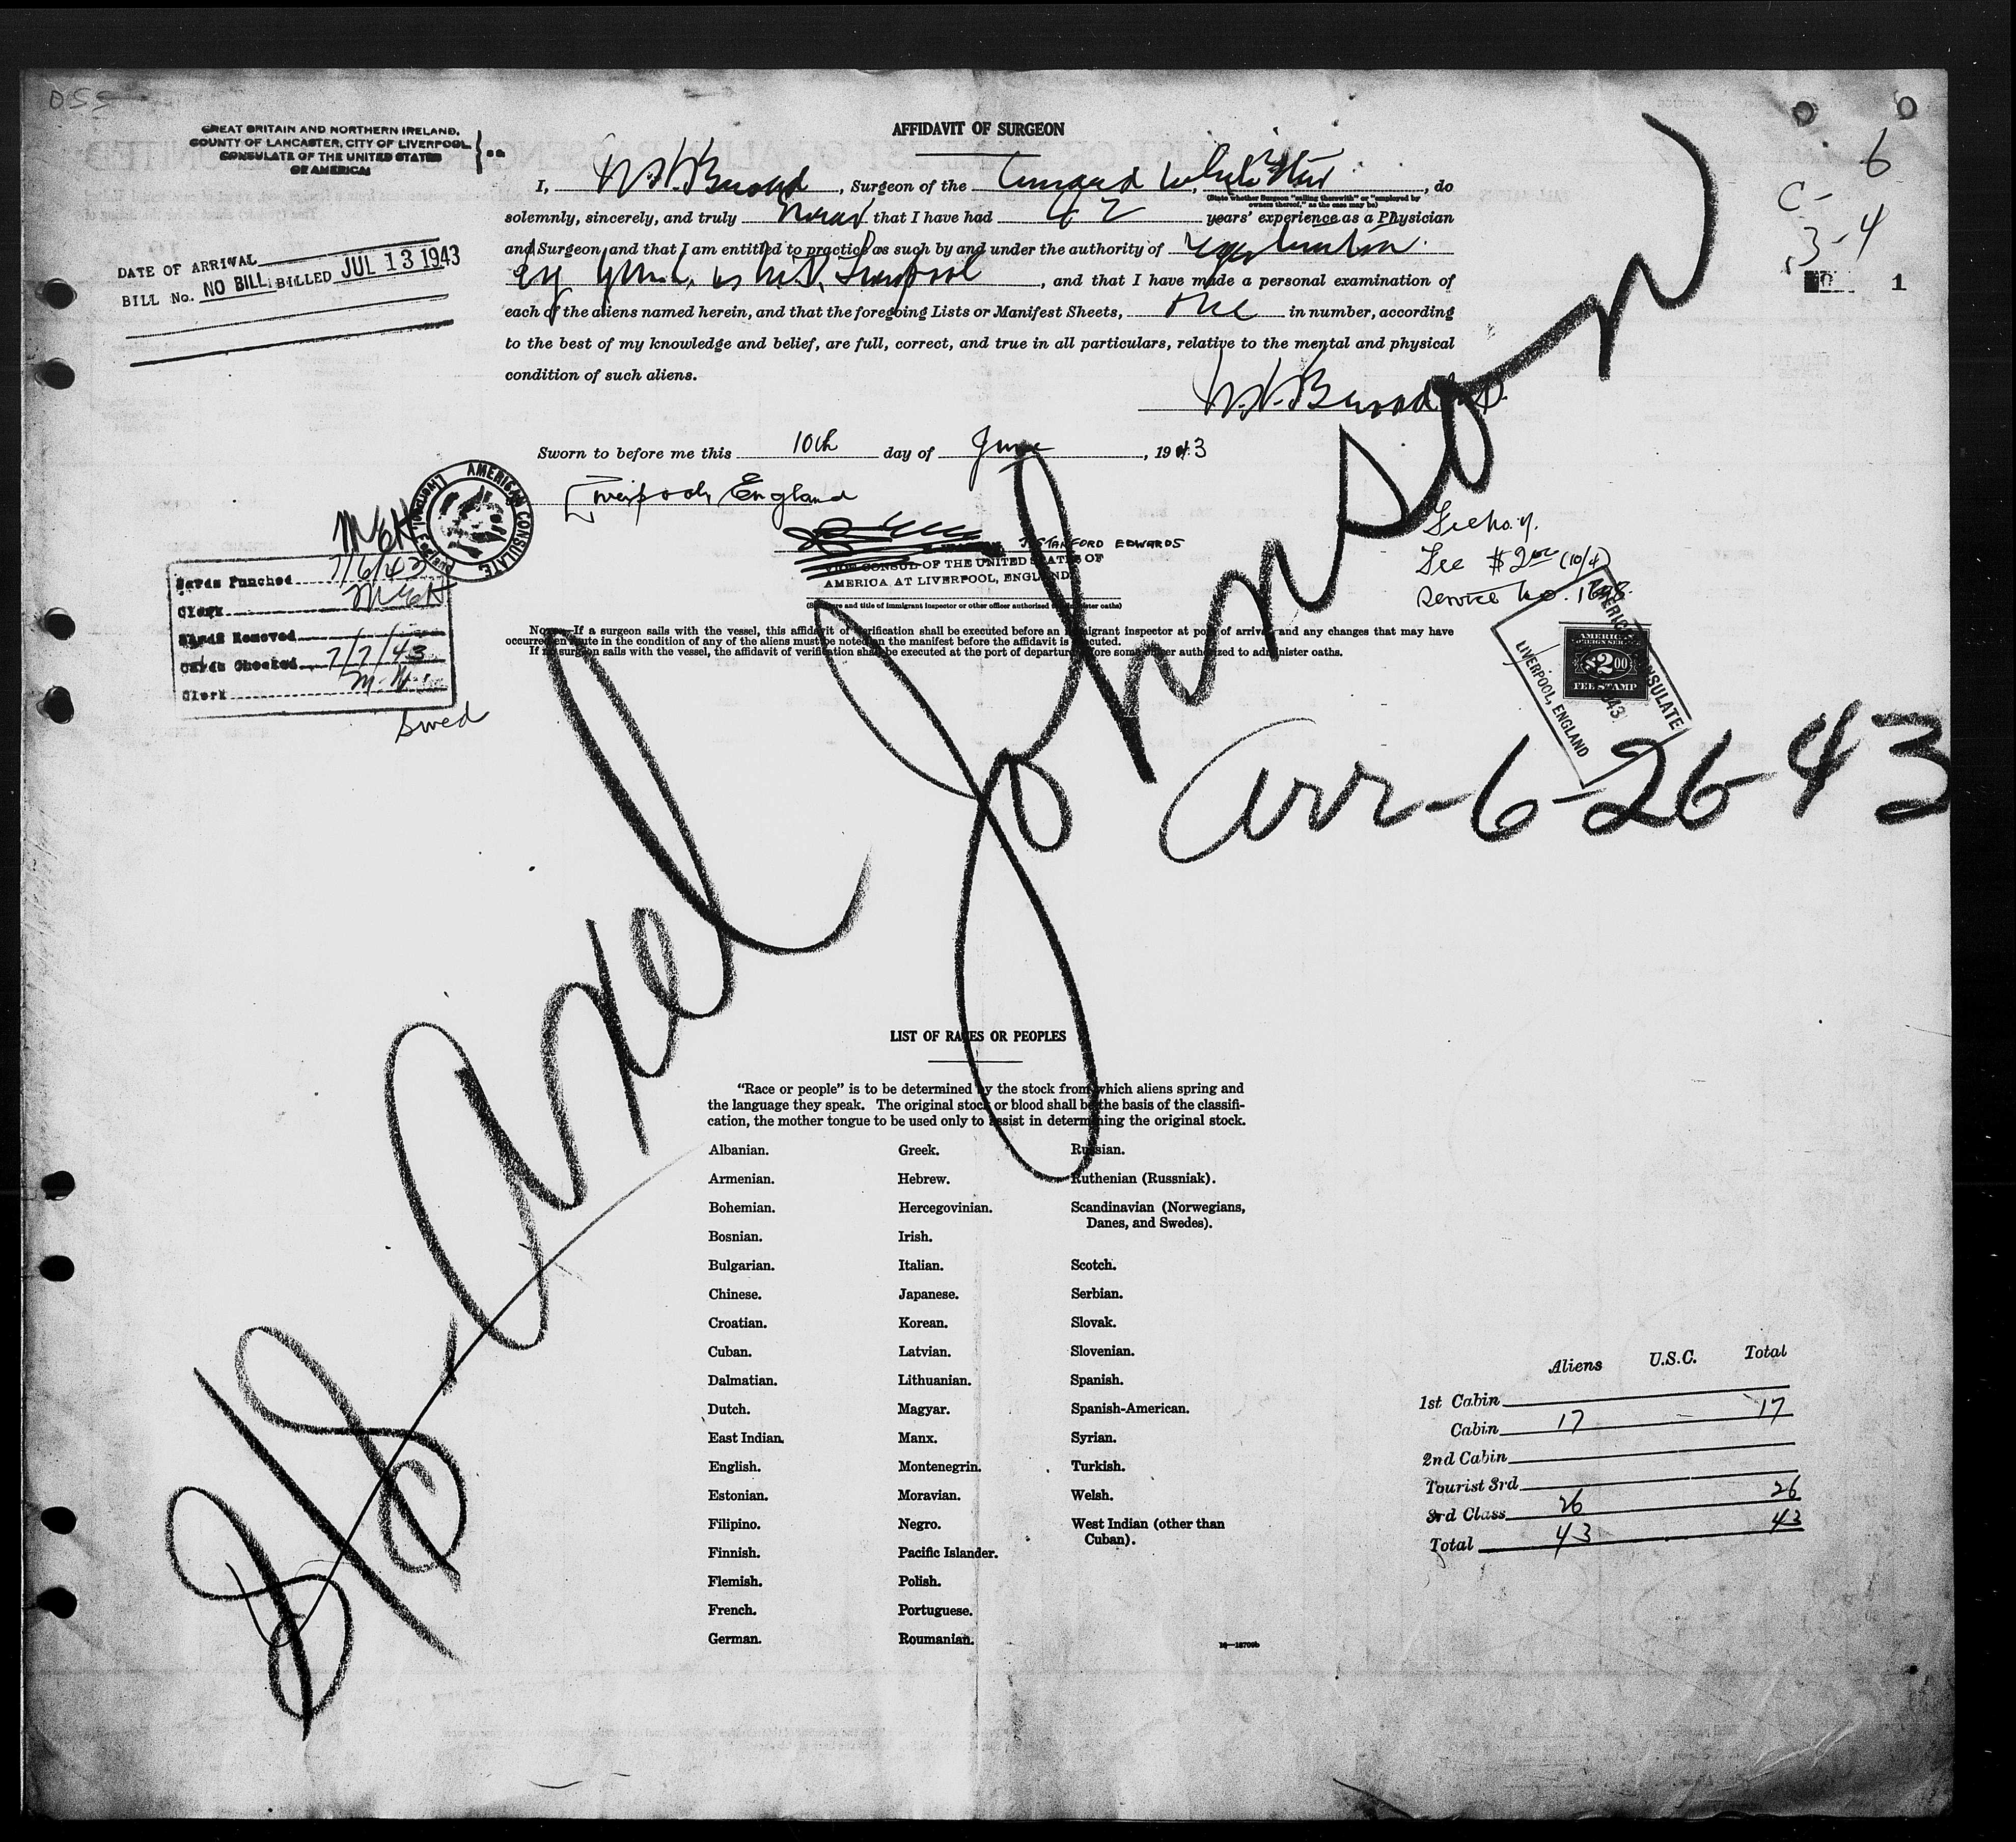 DSS
GREAT BRITAIN AND NORTHERN IRELAND,
COUNTY OF LANCASTER, CITY OF LIVERPOOL
CONSULATE OF THE UNITED STATES
OF AMERICA
} ss
DATE OF ARRIVAL
BILL No. NO BILL BILLED JUL 13 1943
6
C-
3-4
1
AFFIDAVIT OF SURGEON
I, , Surgeon of the Cunard White Star, do
(State whether Surgeon "sailing therewith" or "employed by
owners thereof," as the case may be)
solemnly, sincerely, and truly swear that I have had 42 years' experience as a Physician
and Surgeon, and that I am entitled to practice as such by and under the authority of registration
Liverpool, and that I have made a personal examination of
each of the aliens named herein, and that the foregoing Lists or Manifest Sheets, one in number, according
to the best of my knowledge and belief, are full, correct, and true in all particulars, relative to the mental and physical
condition of such aliens.
Sworn to before me this 10th day of June, 1943
Liverpool, England
J. STANFORD EDWARDS
VICE CONSUL OF THE UNITED STATES OF
AMERICA AT LIVERPOOL, ENGLAND
(Signature and title of immigrant inspector or other officer authorized to administer oaths)
AMERICAN CONSULATE
Liverpool, England
MEK
Cards Punched 7/6/43
Clerk MEK
Cards Removed
Cards Checked 7/7/43
Clerk M.N.
Swed
Fee $2.00 (10/4)
Service No.
AMERICAN CONSULATE
LIVERPOOL, ENGLAND
AMERICAN
FOREIGN SERVICE
$2.00
FEE STAMP
NOTE.—If a surgeon sails with the vessel, this affidavit of verification shall be executed before an immigrant inspector at port of arrival and any changes that may have
occurred en route in the condition of any of the aliens must be noted on the manifest before the affidavit is executed.
If no surgeon sails with the vessel, the affidavit of verification shall be executed at the port of departure before some officer authorized to administer oaths.
S/S Axel Johnson
arr-6-26-43
LIST OF RACES OR PEOPLES
"Race or people" is to be determined by the stock from which aliens spring and
the language they speak. The original stock or blood shall be the basis of the classifi-
cation, the mother tongue to be used only to assist in determining the original stock.
Albanian.
Armenian.
Bohemian.
Bosnian.
Bulgarian.
Chinese.
Croatian.
Cuban.
Dalmatian.
Dutch.
East Indian.
English.
Estonian.
Filipino.
Finnish.
Flemish.
French.
German.
Greek.
Hebrew.
Hercegovinian.
Irish.
Italian.
Japanese.
Korean.
Latvian.
Lithuanian.
Magyar.
Manx.
Montenegrin.
Moravian.
Negro.
Pacific Islander.
Polish.
Portuguese.
Roumanian.
Russian.
Ruthenian (Russniak).
Scandinavian (Norwegians,
Danes, and Swedes).
Scotch.
Serbian.
Slovak.
Slovenian.
Spanish.
Spanish-American.
Syrian.
Turkish.
Welsh.
West Indian (other than
Cuban).
Aliens U.S.C. Total
1st Cabin
Cabin 17 — 17
2nd Cabin
Tourist 3rd
3rd Class 26 26
Total 43 43